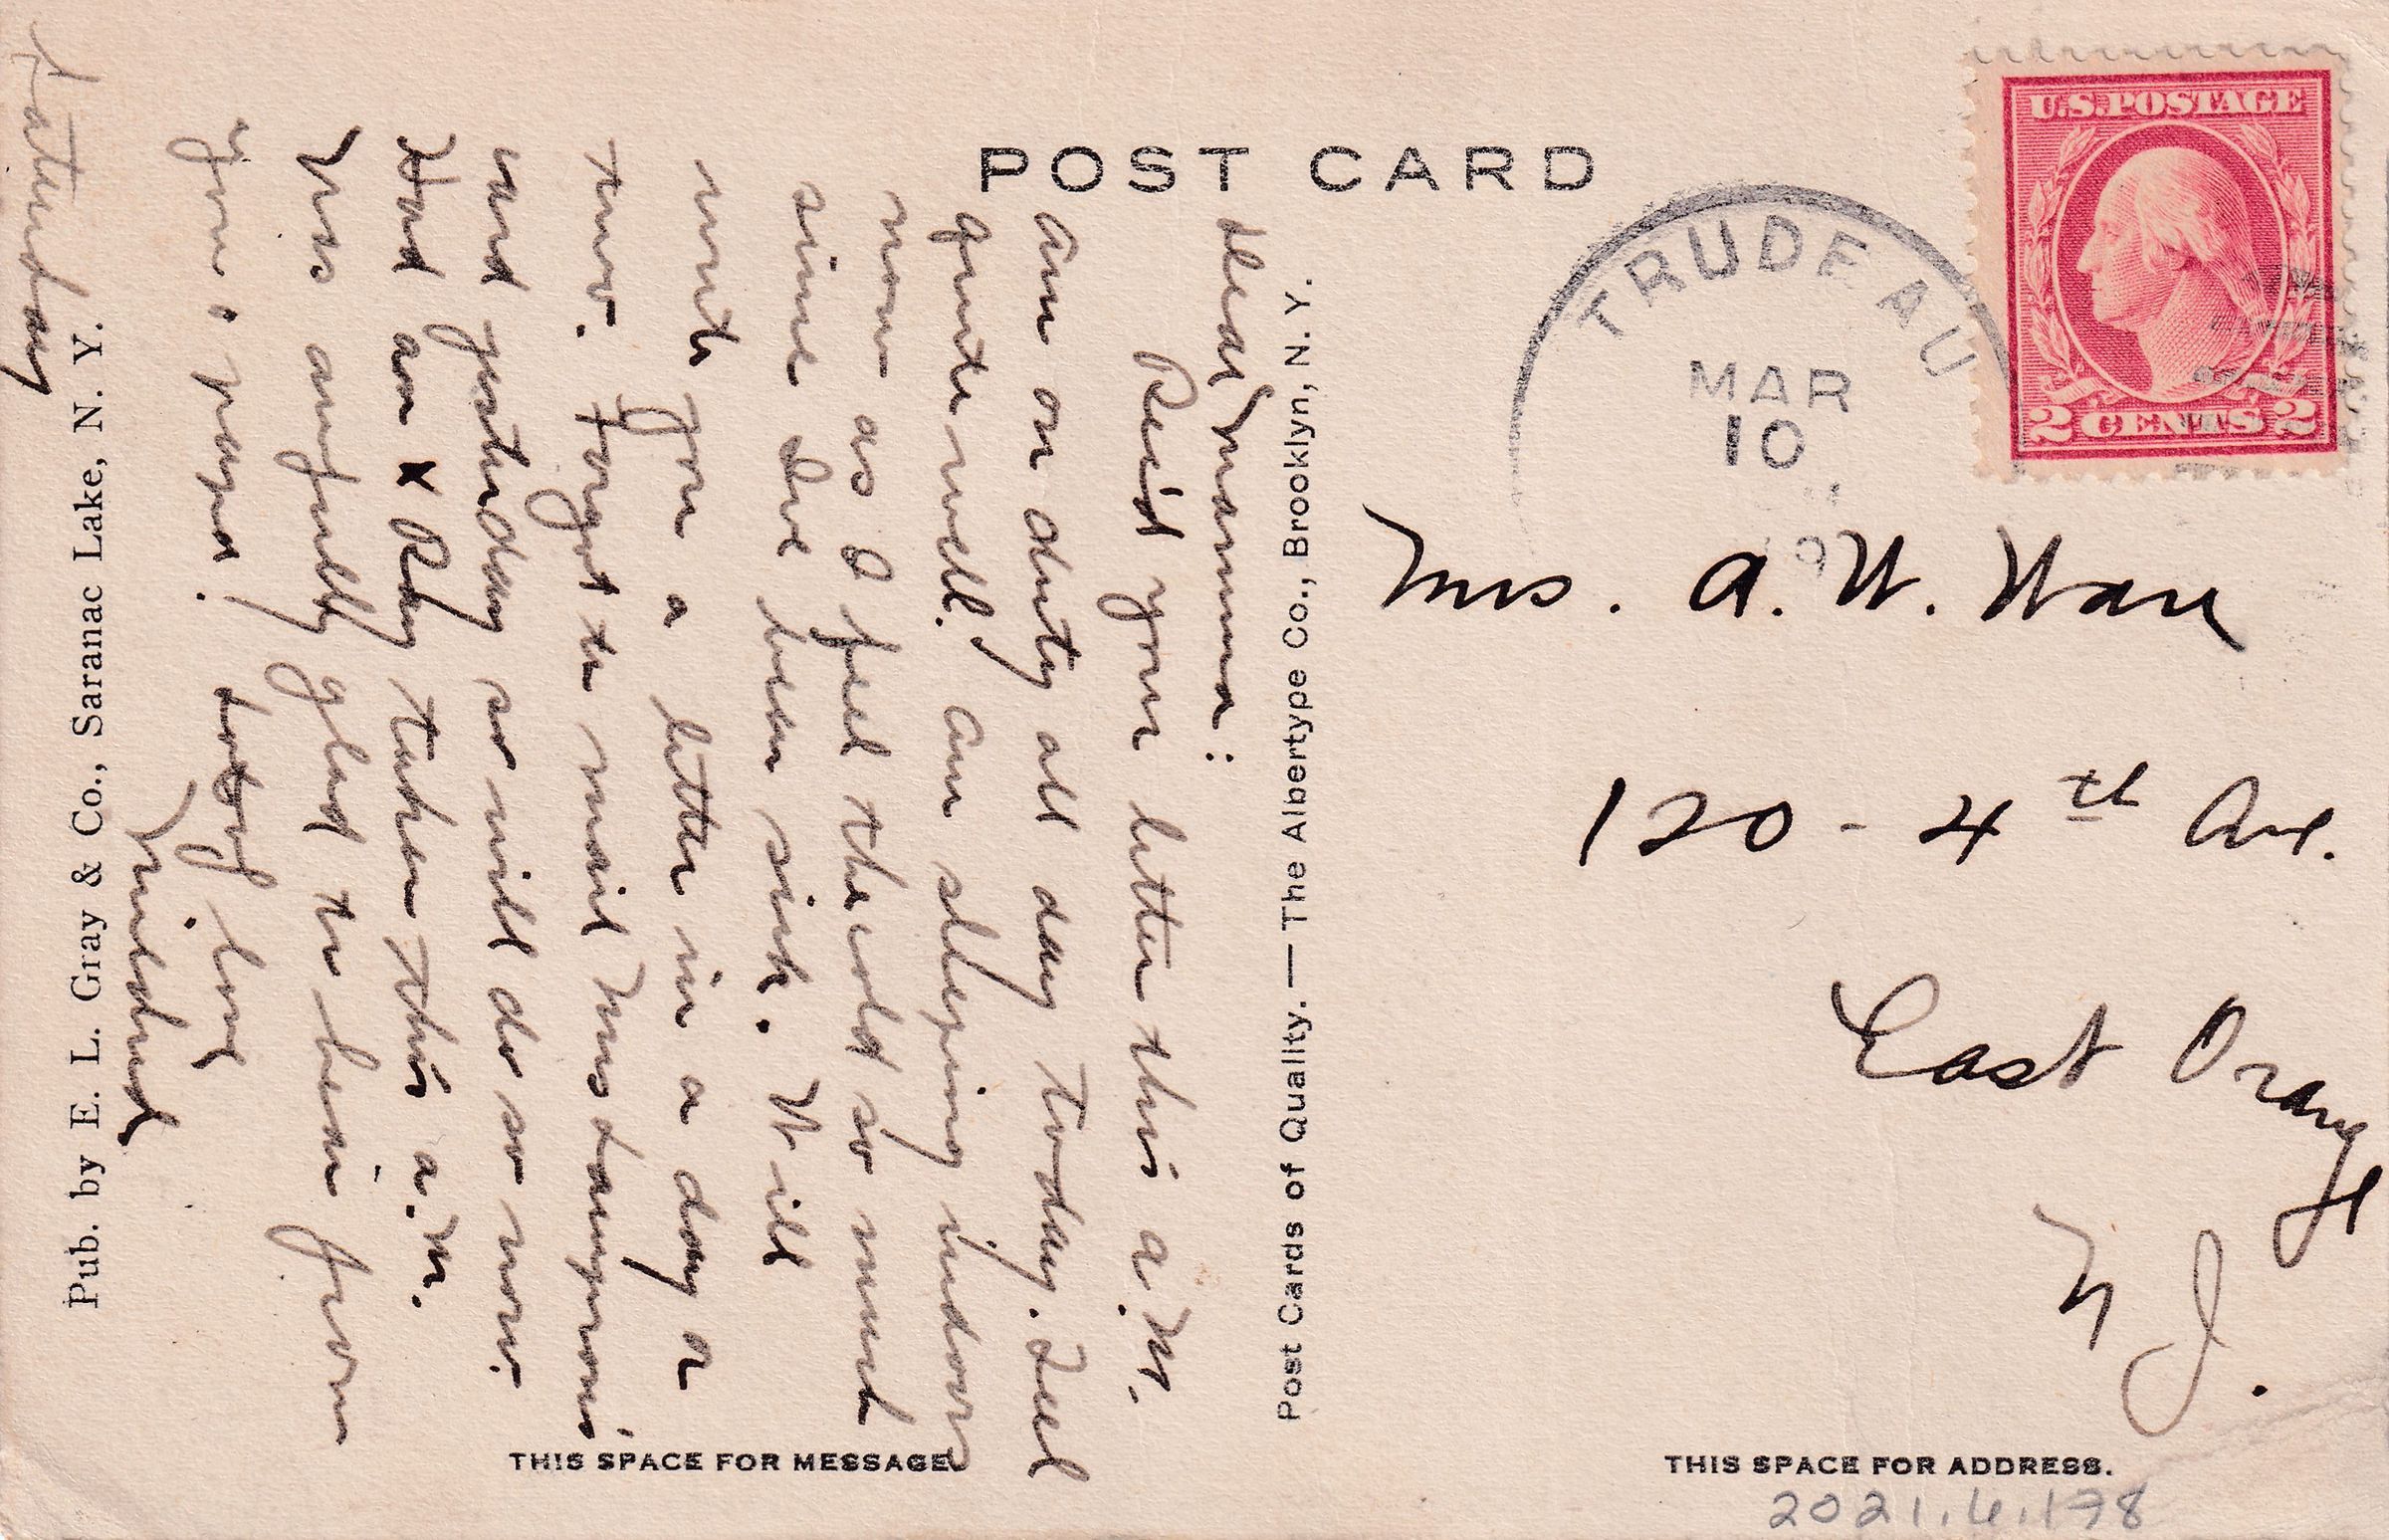 POST CARD
U.S. POSTAGE
2 CENTS 2
TRUDEAU
MAR
10
Mrs. A. W. Ware
120 - 4th Ave.
East Orange
N J.
THIS SPACE FOR ADDRESS.
2021.4.178
Post Cards of Quality. — The Albertype Co., Brooklyn, N. Y.
Saturday
Dear Mamma:
Rec'd your letter this a.M.
Am on duty all day today. Feel
quite well. Am sleeping indoors
now as I feel the cold so much
since I've been sick. Will
write you a letter in a day or
two. Forgot to mail Mrs
card yesterday so will do so now.
Had an x Ray taken this a.M.
Was awfully glad to hear from
you & papa! Lots of love
Mildred
Pub. by E. L. Gray & Co., Saranac Lake, N. Y.
THIS SPACE FOR MESSAGE.